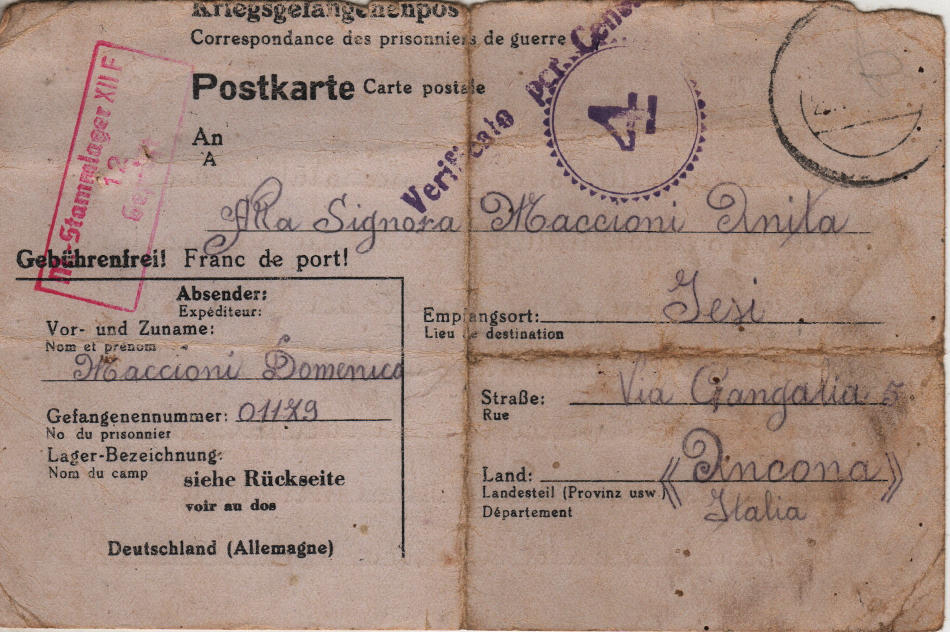 Kriegsgefangenenpos
Correspondance des prisonniers de guerre
Postkarte Carte postale
An
A
Verificato per Cens
4
Stammlager XII F
12
Alla Signora Maccioni Anita
Gebührenfrei! Franc de port!
Absender:
Expéditeur:
Vor- und Zuname:
Nom et prénom
Maccioni Domenico
Gefangenennummer: 01179
No du prisonnier
Lager-Bezeichnung:
Nom du camp
siehe Rückseite
voir au dos
Deutschland (Allemagne)
Empfangsort: Jesi
Lieu de destination
Straße: Via 5
Rue
Land: « Ancona »
Landesteil (Provinz usw.)
Département
Italia